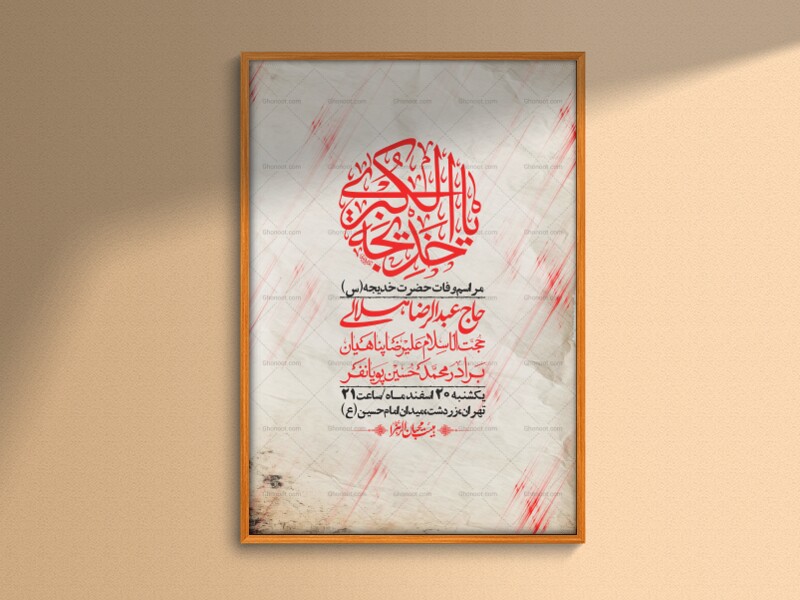 یا خَدیجَه الکُبری
مراسم وفات حضرت خدیجه(س)
حاج عبدالرضا هلالی
حجت الاسلام علیرضا پناهیان
برادر محمد حسین پویانفر
یکشنبه ۲۰ اسفند ماه / ساعت ۲۱
تهران، زردشت، میدان امام حسین (ع)
Ghonoot.com